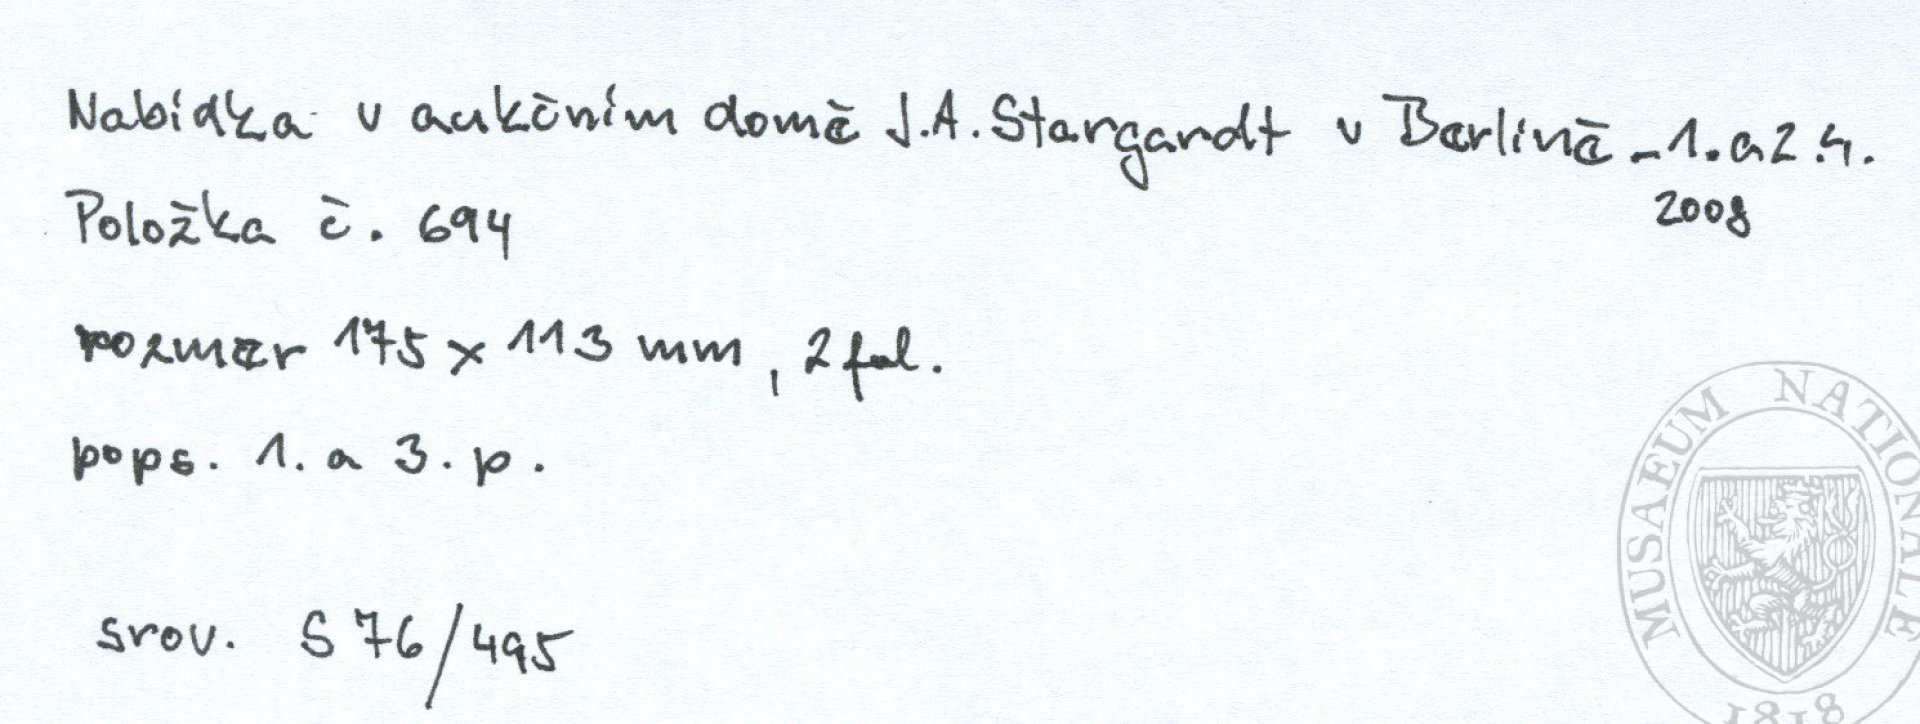 Nabídka v aukčním domě J.A. Stargardt v Berlině - 1. a 2.4.
2008
Položka č. 694
rozmer 175 x 113 mm, 2 fol.
pops. 1. a 3. p.
srov. S 76/495
MUSAEUM NATIONALE
1818